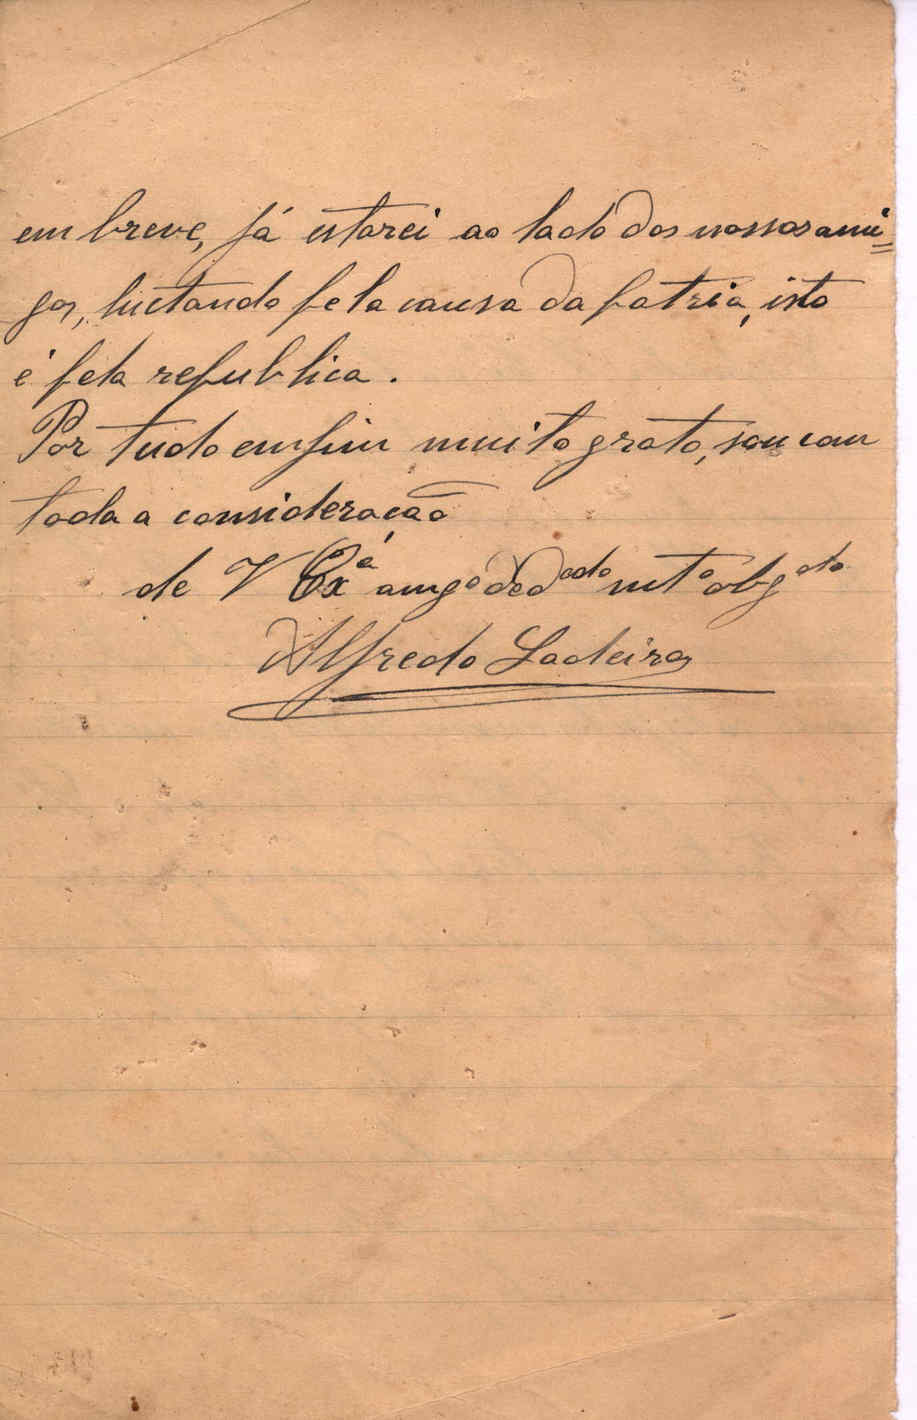 em breve, já estarei ao lado dos nossos ami=
gos, luctando pela causa da patria, isto
é pela republica.
Por tudo emfim muito grato, sou com
toda a consideração
de V Exª amgº dedcado mtº obgado
Alfredo Ladeira